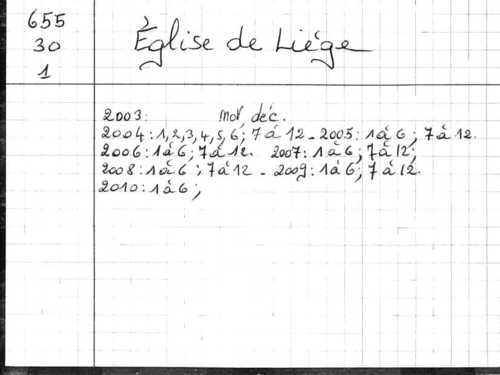 655
30
1
Église de Liége
2003: nov déc.
2004: 1,2,3,4,5,6; 7 à 12 - 2005: 1 à 6; 7 à 12.
2006: 1 à 6; 7 à 12. 2007: 1 à 6; 7 à 12;
2008: 1 à 6; 7 à 12 - 2009: 1 à 6; 7 à 12.
2010: 1 à 6;